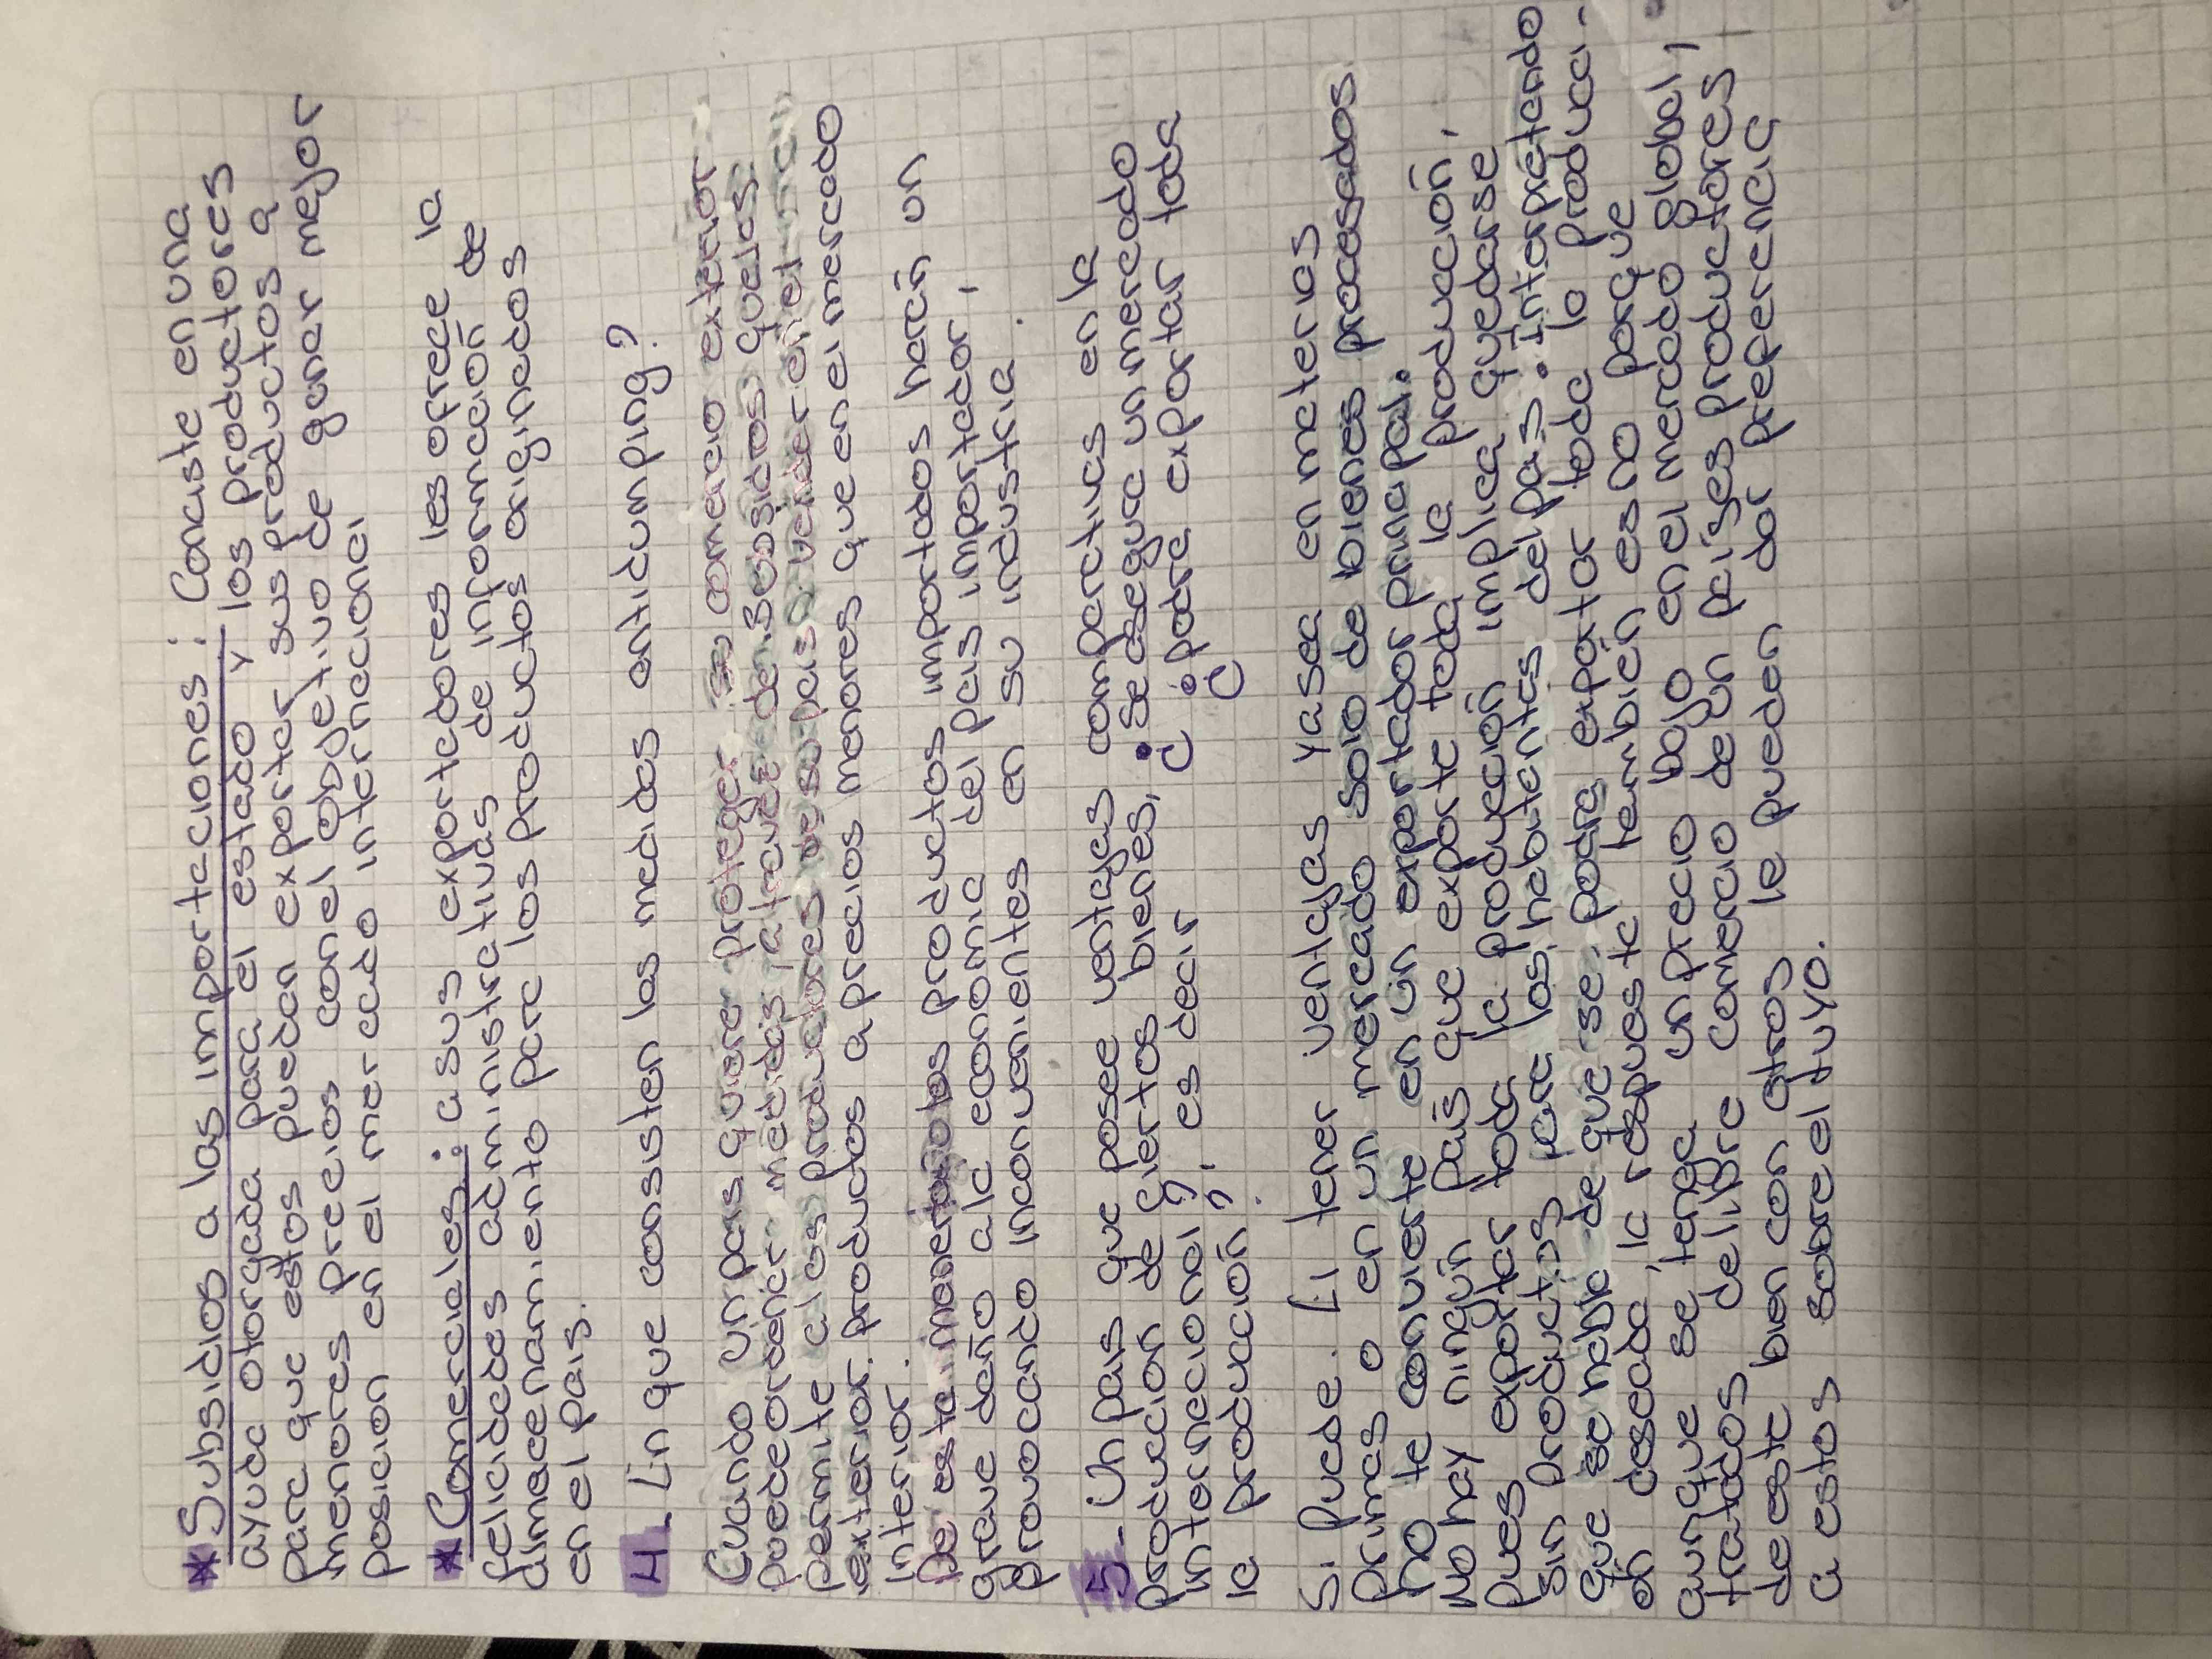 * Subsidios a las importaciones : Consiste en una
ayuda otorgada para el estado y los productores
para que estos puedan exportar sus productos a
menores precios con el objetivo de ganar mejor
posicion en el mercado internacional
* Comerciales : a sus exportadores les ofrece la
felicidades administrativas de información de
almacenamiento para los productos originados
en el pais.
4. En que consisten las medidas antidumping?
Cuando un pais quiere proteger su comercio exterior
puede ordenar medidas a traves de subsidios que las
permite a los productores de su pais vender en el
exterior. productos a precios menores que en el mercado
interior.
De esta manera los productos importados harán un
grave daño a la economia del pais importador,
provocando inconvenientes en su industria.
5. Un pais que posee ventajas comperctivas en la
producción de ciertos bienes, ¿se asegura un mercado
internacional?, es decir ¿podra exportar toda
la producción?.
Si puede. El tener ventajas ya sea en materias
primas o en un mercado solo de bienes procesados
no te convierte en un exportador principal.
No hay ningún país que exporte toda la producción,
pues exportar toda la producción implica quedarse
sin productos para los habitantes del pais. Interpretando
que se hable de que se podra exportar toda la producci-
ón deseada, la respuesta tambien es no porque
aunque se tenga un precio bajo en el mercado global,
tratados de libre comercio de un países productores
de este bien con otros le pueden dar preferencia
a estos sobre el tuyo.